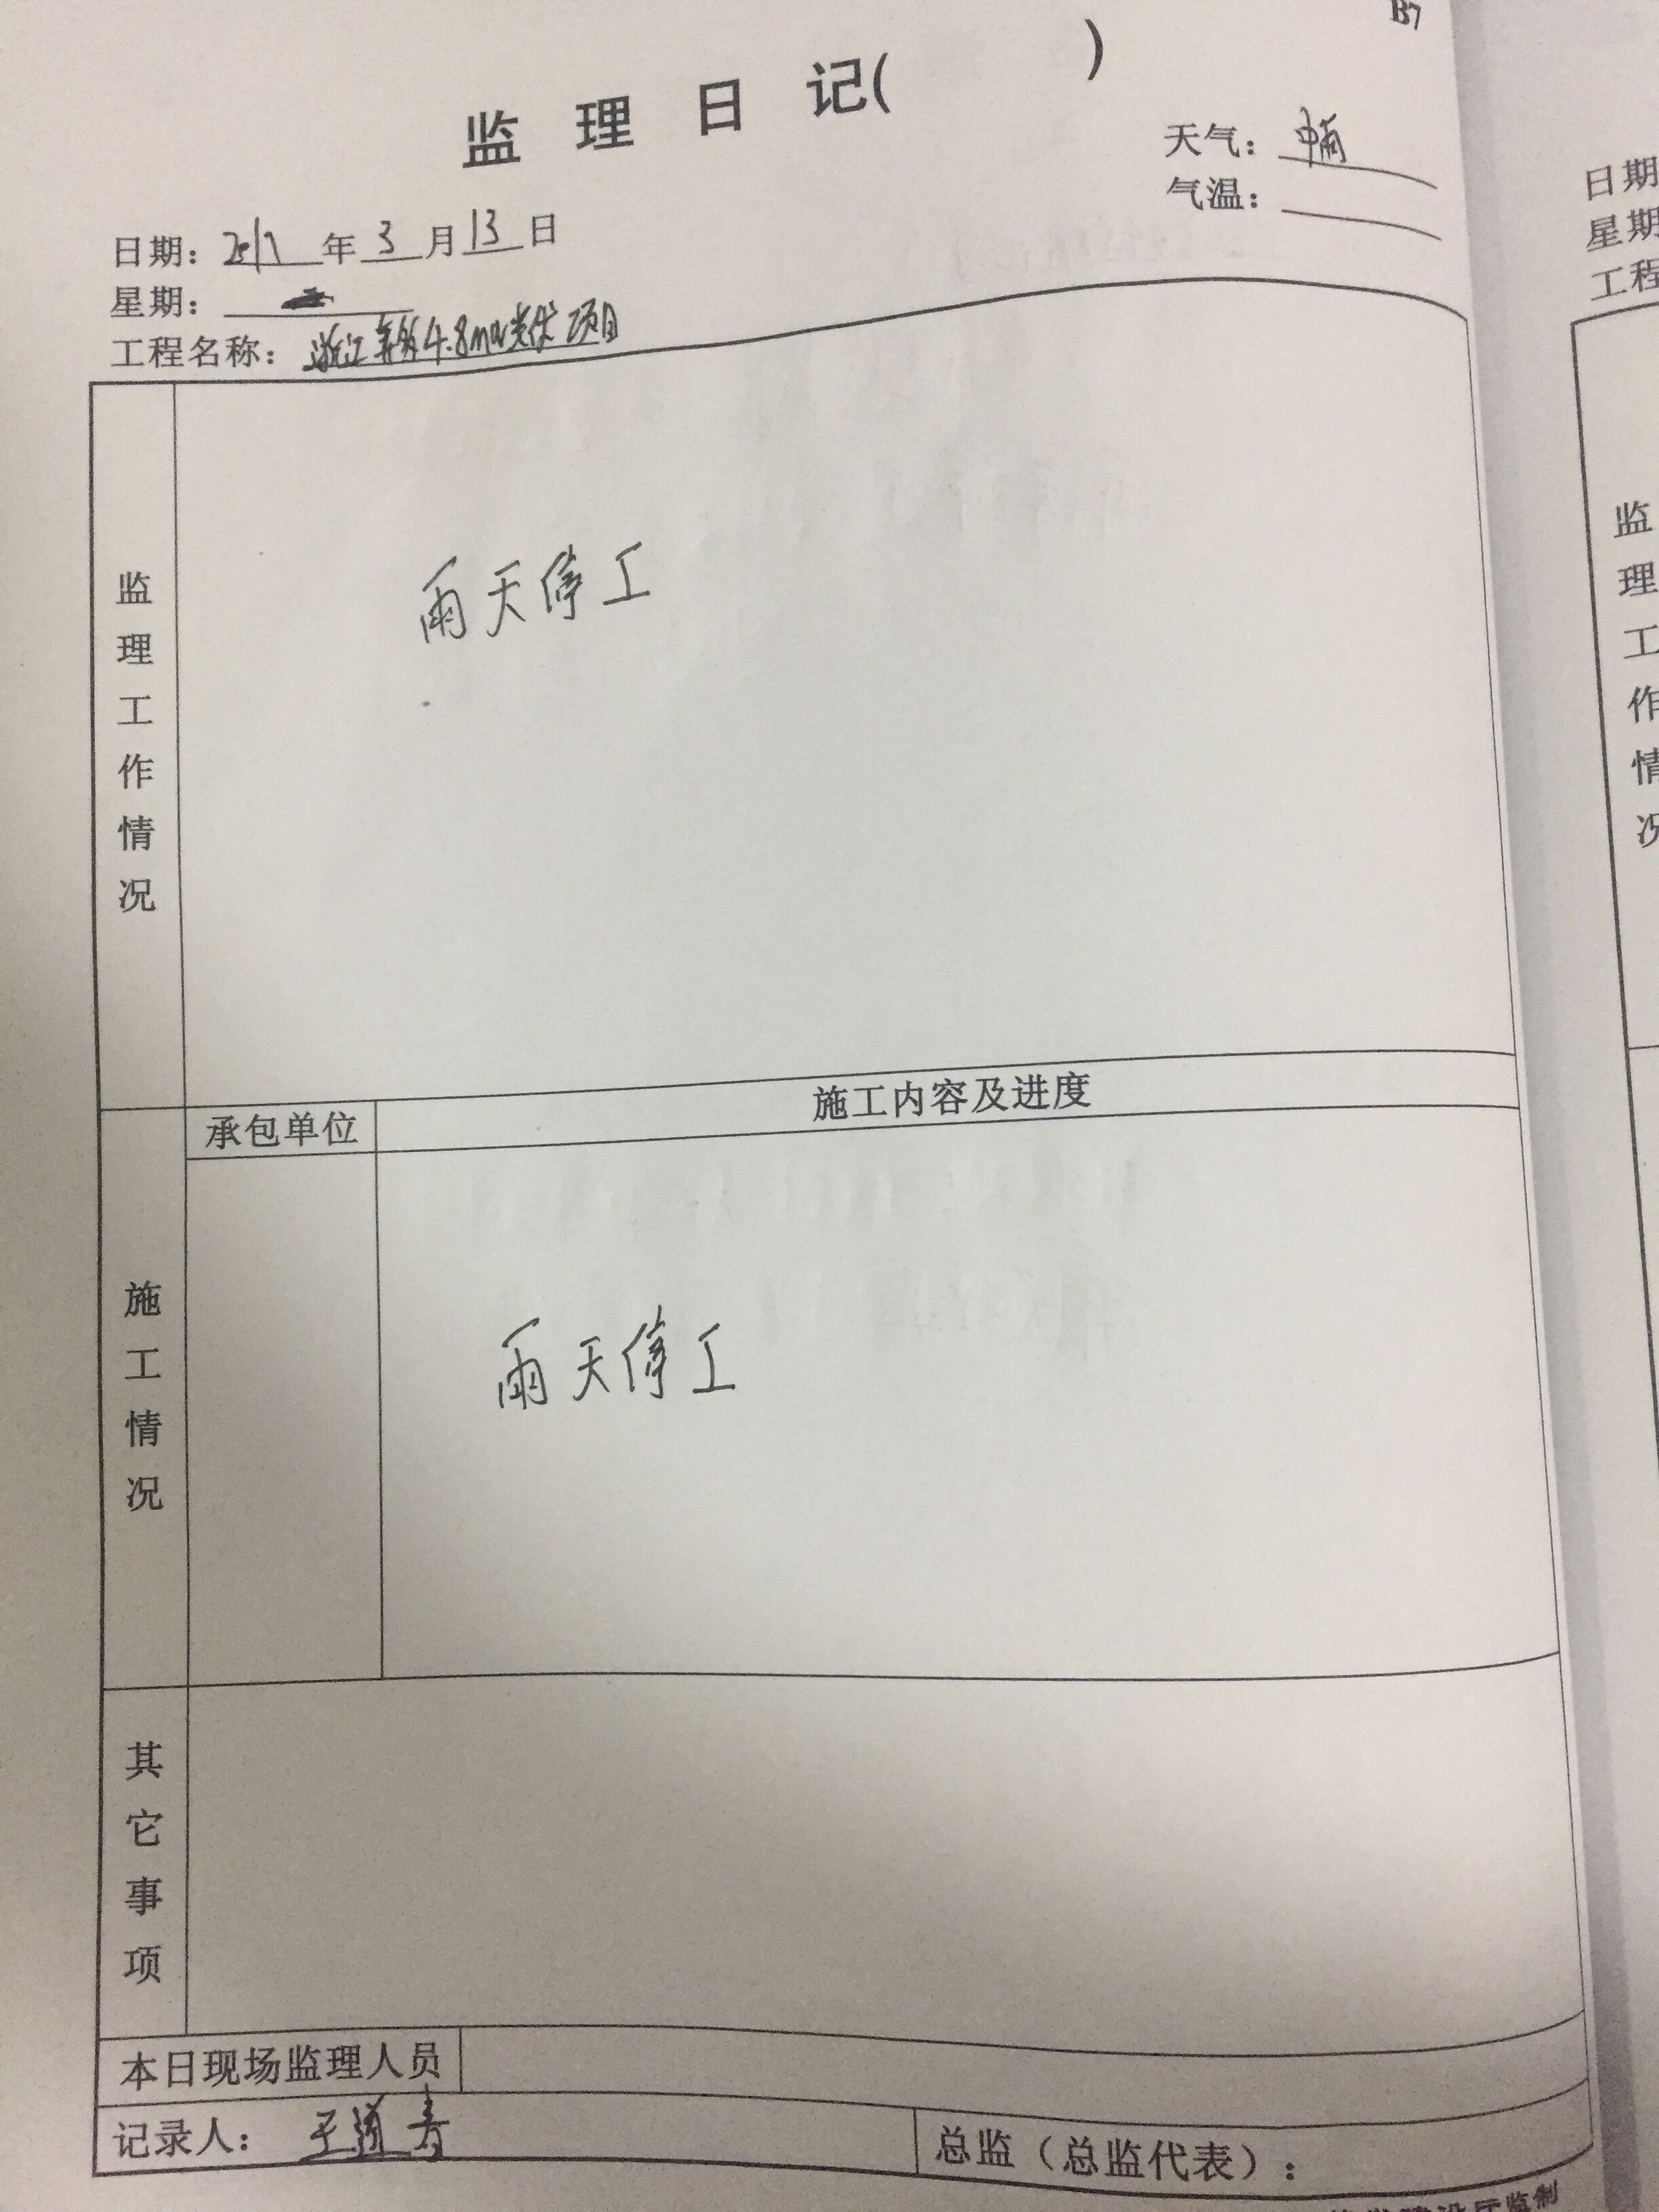 B7
监理日记( )
天气：中雨
气温：
日期：2017年3月13日
星期：一
工程名称：浙江 4.8MW光伏项目
监理工作情况
雨天停工
承包单位
施工内容及进度
施工情况
雨天停工
其它事项
本日现场监理人员
记录人：王道寿
总监（总监代表）：
建设厅监制
日期
星期
工程
监理工作情况